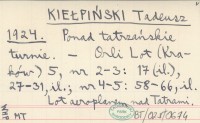 KIEŁPIŃSKI Tadeusz
1924. Ponad tatrzańskie
turnie. – Orli Lot (Kra-
ków) 5, nr 2-3: 17 (il.),
27-31, il.; nr 4-5: 58-66, il.
Lot aeroplanem nad Tatrami.
MT